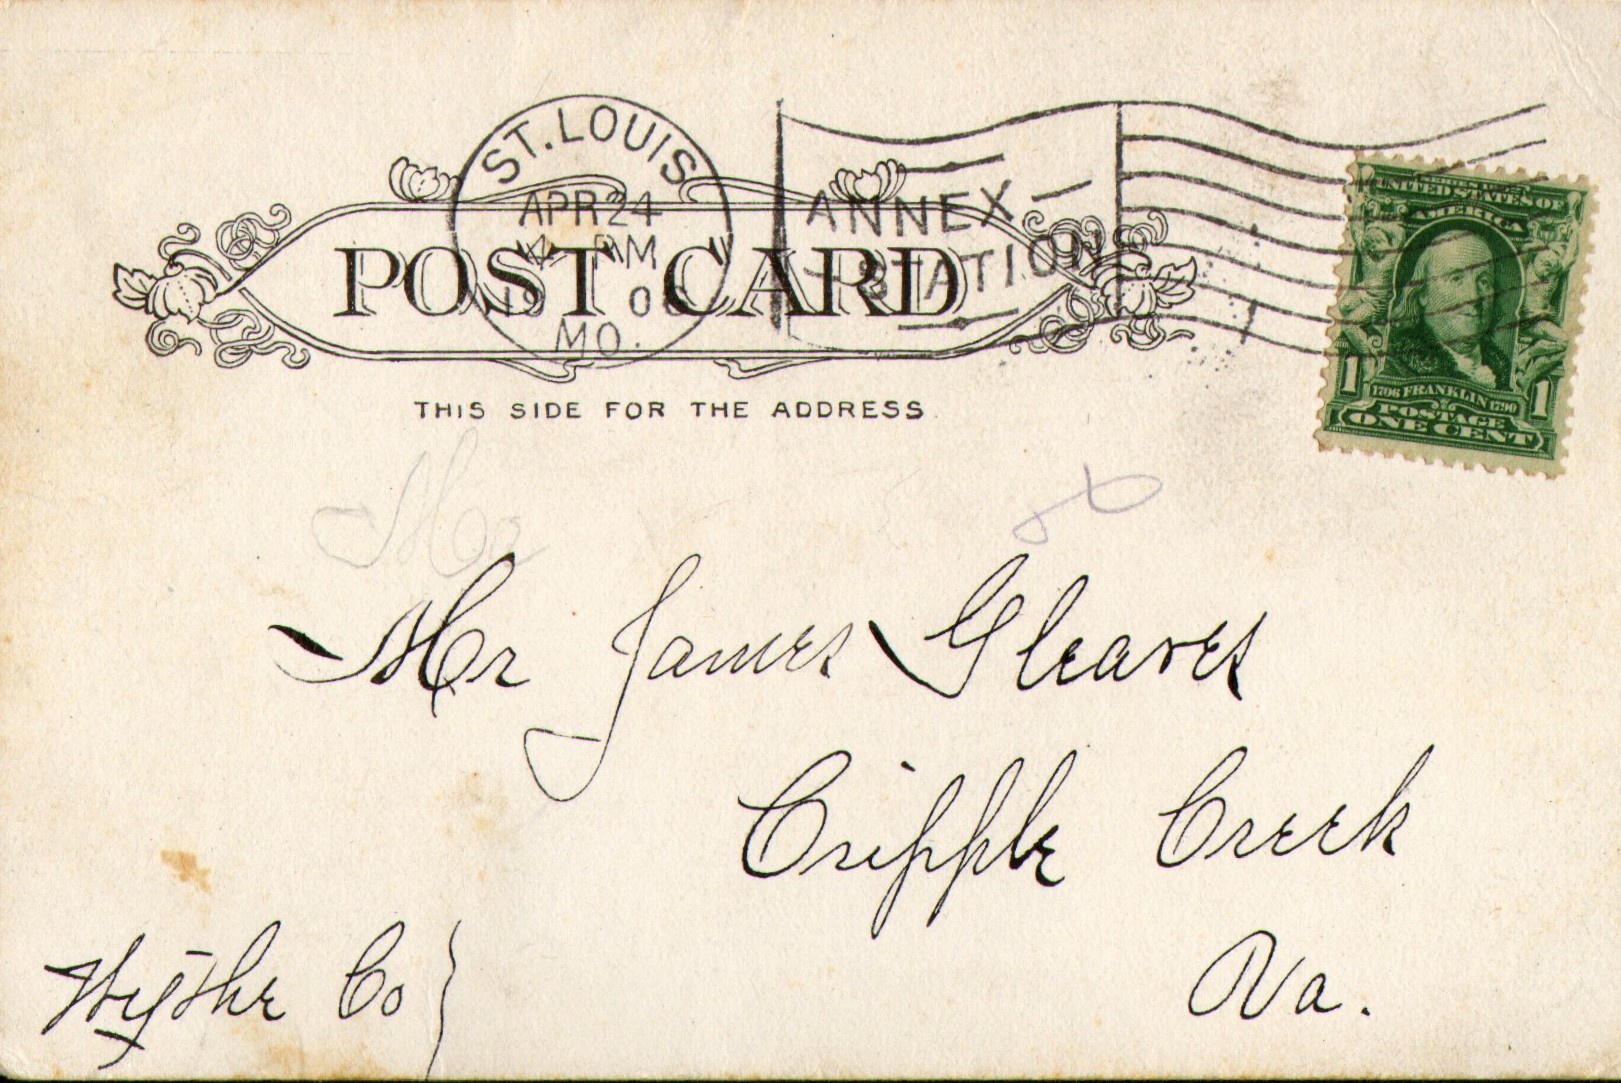 ST. LOUIS
APR 24
MO.
ANNEX
STATION
POST CARD
THIS SIDE FOR THE ADDRESS.
UNITED STATES OF
AMERICA
1706 FRANKLIN 1790
1 POSTAGE 1
ONE CENT
Mr
Mr James Gleaves
Cripple Creek
Va.
Wythe Co